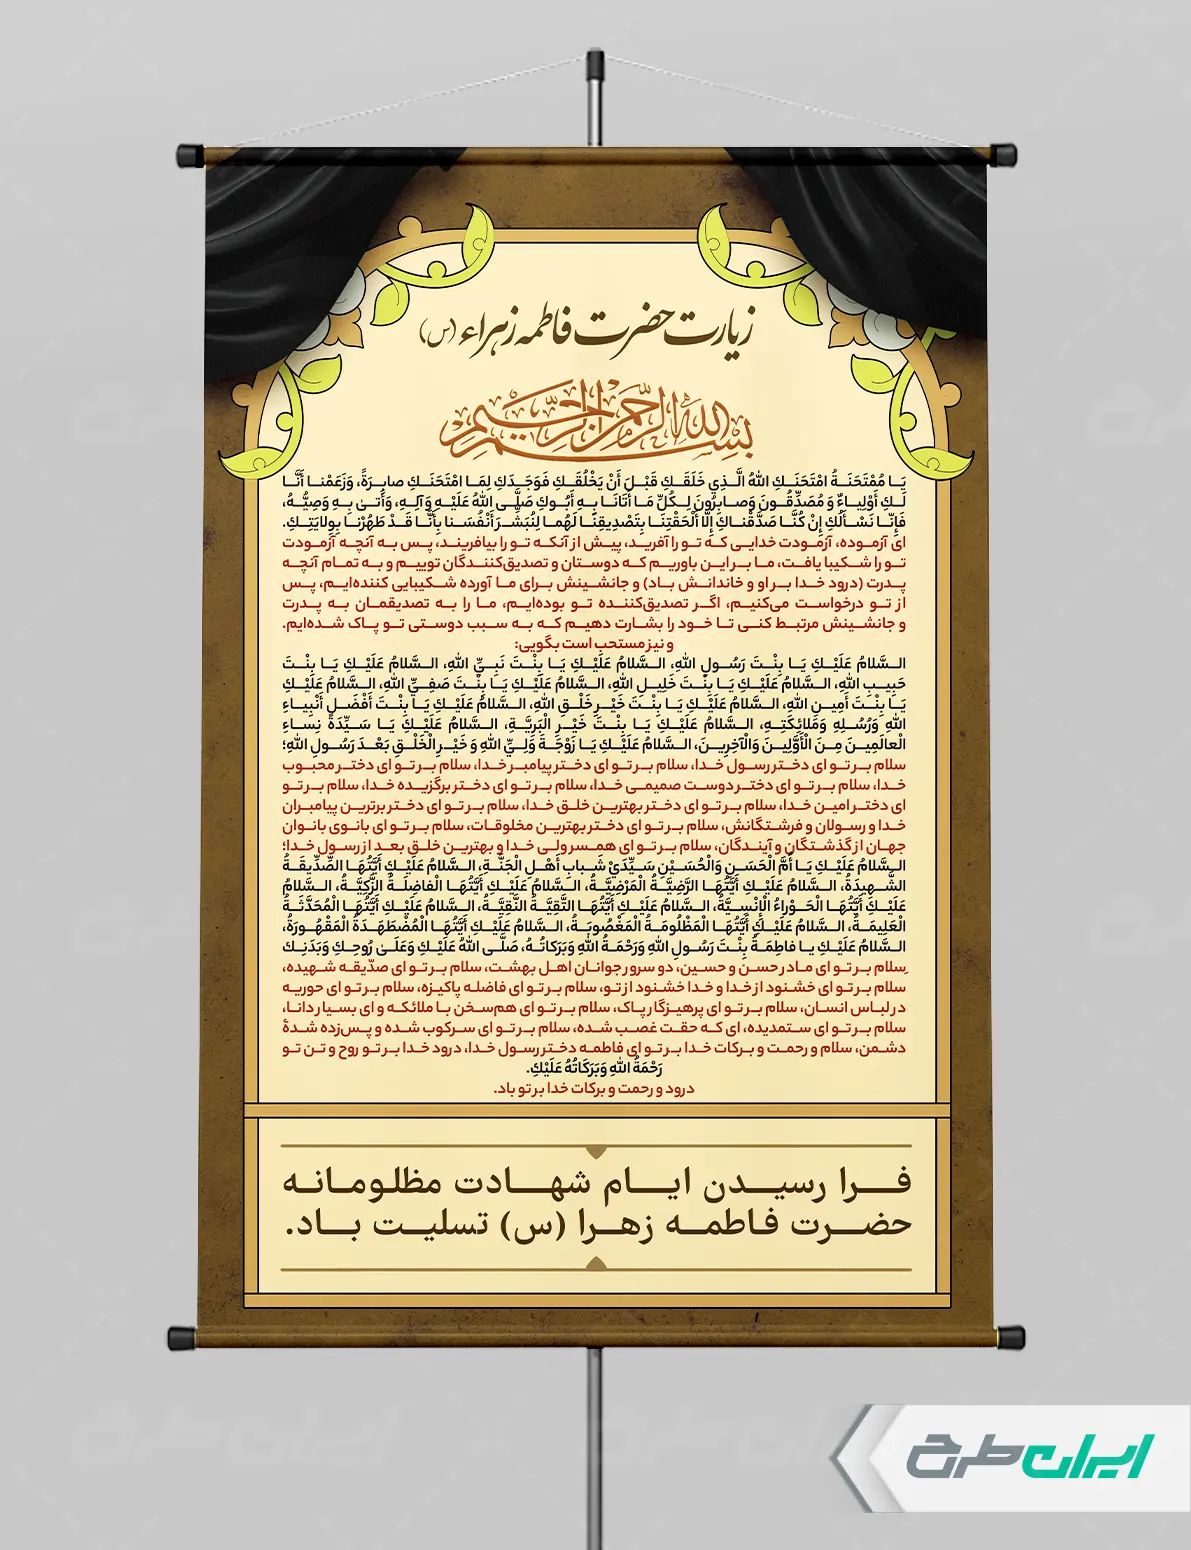 زیارت حضرت فاطمه زهراء (س)
بسم الله الرحمن الرحیم
يَا مُمْتَحَنَةُ امْتَحَنَكِ اللهُ الَّذِي خَلَقَكِ قَبْلَ أَنْ يَخْلُقَكِ فَوَجَدَكِ لِمَا امْتَحَنَكِ صابِرَةً، وَزَعَمْنا أَنَّا
لَكِ أَوْلِياءٌ وَ مُصَدِّقُونَ وَصابِرُونَ لِكُلِّ مَا أَتَانَا بِهِ أَبُوكِ صَلَّى اللهُ عَلَيْهِ وَآلِهِ، وَأَتىٰ بِهِ وَصِيُّهُ،
فَإِنَّا نَسْأَلُكِ إِنْ كُنَّا صَدَّقْناكِ إِلَّا أَلْحَقْتِنَا بِتَصْدِيقِنَا لَهُما لِنُبَشِّرَ أَنْفُسَنا بِأَنَّا قَدْ طَهُرْنا بِوِلايَتِكِ.
ای آزموده، آزمودت خدایی که تو را آفرید، پیش از آنکه تو را بیافریند، پس به آنچه آزمودت
تو را شکیبا یافت، ما بر این باوریم که دوستان و تصدیق‌کنندگان توییم و به تمام آنچه
پدرت (درود خدا بر او و خاندانش باد) و جانشینش برای ما آورده شکیبایی کننده‌ایم، پس
از تو درخواست می‌کنیم، اگر تصدیق‌کننده تو بوده‌ایم، ما را به تصدیقمان به پدرت
و جانشینش مرتبط کنی تا خود را بشارت دهیم که به سبب دوستی تو پاک شده‌ایم.
و نیز مستحب است بگویی:
السَّلامُ عَلَيْكِ يَا بِنْتَ رَسُولِ اللهِ، السَّلامُ عَلَيْكِ يَا بِنْتَ نَبِيِّ اللهِ، السَّلامُ عَلَيْكِ يَا بِنْتَ
حَبِيبِ اللهِ، السَّلامُ عَلَيْكِ يَا بِنْتَ خَلِيلِ اللهِ، السَّلامُ عَلَيْكِ يَا بِنْتَ صَفِيِّ اللهِ، السَّلامُ عَلَيْكِ
يَا بِنْتَ أَمِينِ اللهِ، السَّلامُ عَلَيْكِ يَا بِنْتَ خَيْرِ خَلْقِ اللهِ، السَّلامُ عَلَيْكِ يَا بِنْتَ أَفْضَلِ أَنْبِياءِ
اللهِ وَرُسُلِهِ وَمَلائِكَتِهِ، السَّلامُ عَلَيْكِ يَا بِنْتَ خَيْرِ الْبَرِيَّةِ، السَّلامُ عَلَيْكِ يَا سَيِّدَةَ نِساءِ
الْعالَمِينَ مِنَ الْأَوَّلِينَ وَالْآخِرِينَ، السَّلامُ عَلَيْكِ يَا زَوْجَةَ وَلِيِّ اللهِ وَ خَيْرِ الْخَلْقِ بَعْدَ رَسُولِ اللهِ؛
سلام بر تو ای دختر رسول خدا، سلام بر تو ای دختر پیامبر خدا، سلام بر تو ای دختر محبوب
خدا، سلام بر تو ای دختر دوست صمیمی خدا، سلام بر تو ای دختر برگزیده خدا، سلام بر تو
ای دختر امین خدا، سلام بر تو ای دختر بهترین خلق خدا، سلام بر تو ای دختر برترین پیامبران
خدا و رسولان و فرشتگانش، سلام بر تو ای دختر بهترین مخلوقات، سلام بر تو ای بانوی بانوان
جهان از گذشتگان و آیندگان، سلام بر تو ای همسر ولی خدا و بهترین خلق بعد از رسول خدا؛
السَّلامُ عَلَيْكِ يَا أُمَّ الْحَسَنِ وَالْحُسَيْنِ سَيِّدَيْ شَبابِ أَهْلِ الْجَنَّةِ، السَّلامُ عَلَيْكِ أَيَّتُهَا الصِّدِّيقَةُ
الشَّهِيدَةُ، السَّلامُ عَلَيْكِ أَيَّتُهَا الرَّضِيَّةُ الْمَرْضِيَّةُ، السَّلامُ عَلَيْكِ أَيَّتُهَا الْفاضِلَةُ الزَّكِيَّةُ، السَّلامُ
عَلَيْكِ أَيَّتُهَا الْحَوْراءُ الْإِنْسِيَّةُ، السَّلامُ عَلَيْكِ أَيَّتُهَا التَّقِيَّةُ النَّقِيَّةُ، السَّلامُ عَلَيْكِ أَيَّتُهَا الْمُحَدَّثَةُ
الْعَلِيمَةُ، السَّلامُ عَلَيْكِ أَيَّتُهَا الْمَظْلُومَةُ الْمَغْصُوبَةُ، السَّلامُ عَلَيْكِ أَيَّتُهَا الْمُضْطَهَدَةُ الْمَقْهُورَةُ،
السَّلامُ عَلَيْكِ يا فاطِمَةُ بِنْتَ رَسُولِ اللهِ وَرَحْمَةُ اللهِ وَبَرَكاتُهُ، صَلَّى اللهُ عَلَيْكِ وَعَلَىٰ رُوحِكِ وَبَدَنِكِ
سلام بر تو ای مادر حسن و حسین، دو سرور جوانان اهل بهشت، سلام بر تو ای صدّیقه شهیده،
سلام بر تو ای خشنود از خدا و خدا خشنود از تو، سلام بر تو ای فاضله پاکیزه، سلام بر تو ای حوریه
در لباس انسان، سلام بر تو ای پرهیزگار پاک، سلام بر تو ای هم‌سخن با ملائکه و ای بسیار دانا،
سلام بر تو ای ستمدیده، ای که حقت غصب شده، سلام بر تو ای سرکوب شده و پس‌زده شدهٔ
دشمن، سلام و رحمت و برکات خدا بر تو ای فاطمه دختر رسول خدا، درود خدا بر تو روح و تن تو
رَحْمَةُ اللهِ وَبَرَكَاتُهُ عَلَيْكِ.
درود و رحمت و برکات خدا بر تو باد.
فرا رسیدن ایام شهادت مظلومانه
حضرت فاطمه زهرا (س) تسلیت باد.
ایران طرح